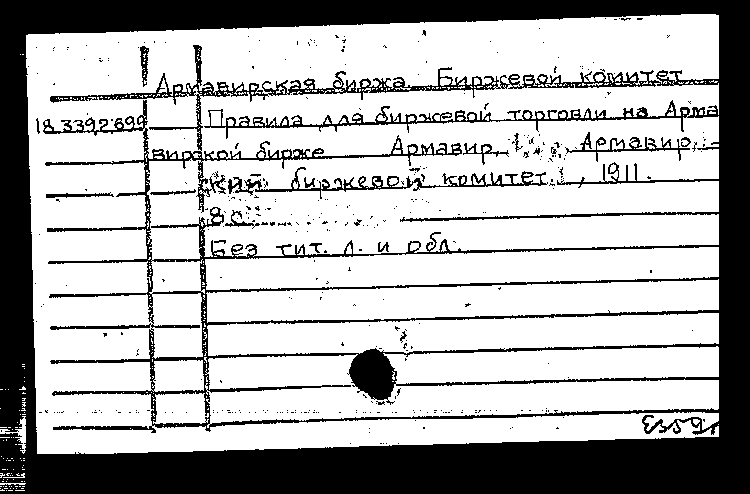 Армавирская биржа. Биржевой комитет
18.339.2.699 Правила для биржевой торговли на Арма
вирской бирже Армавир, Армавир-
ский биржевой комитет, 1911.
8 с.
Без тит. л. и обл.